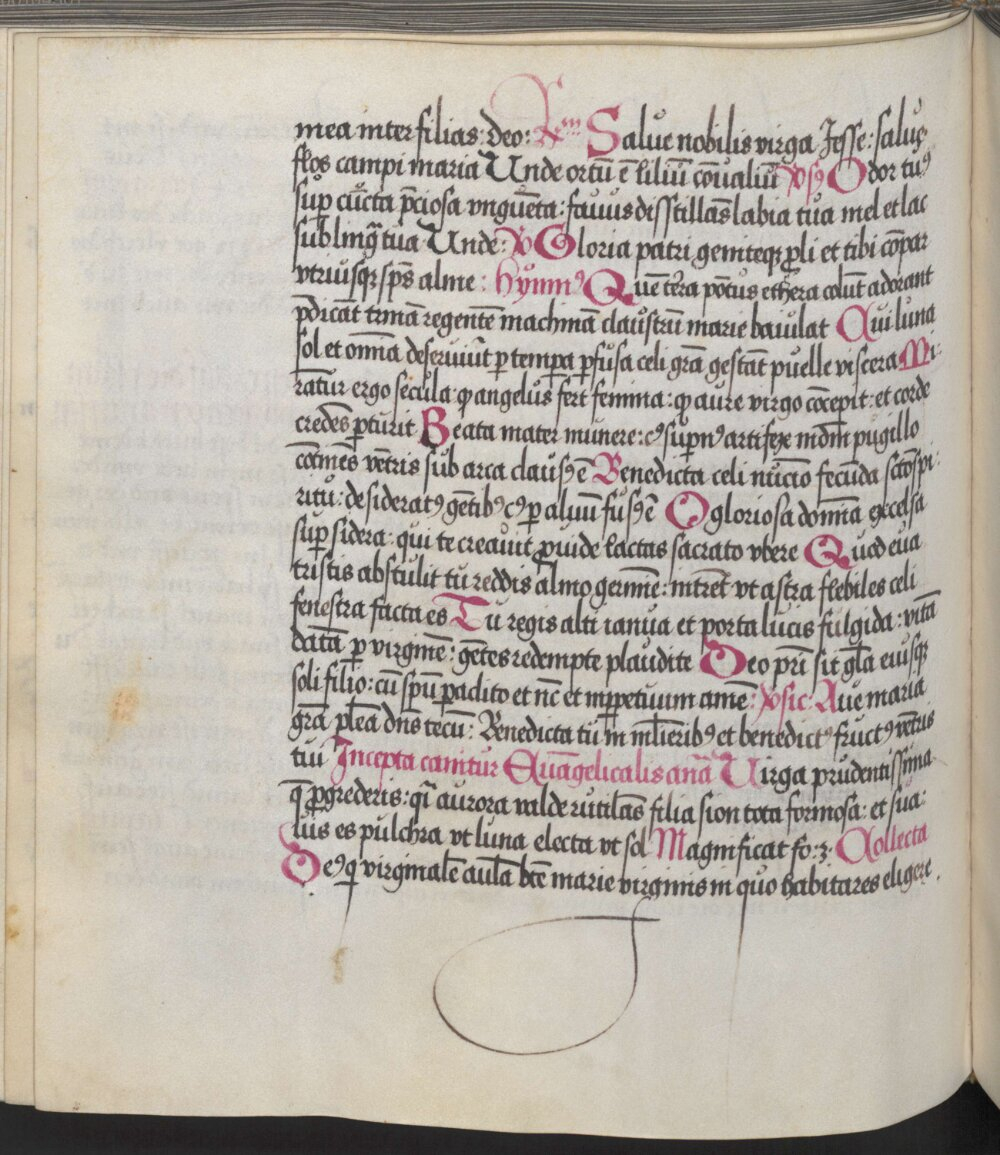 mea inter filias: deo: Rm̄ Salue nobilis virga Jesse: salue
flos campi maria Unde ortū ē liliū cōualiū Vsꝰ Odor tuꝰ
suꝑ cūcta p̄ciosa vngueta: fauus disstillās labia tua mel et lac
sub lingᷓ tua Unde: V Gloria patri geniteqꝫ ꝓli et tibi cōpar
vtriusqꝫ sp̄s alme: hymnꝰ Quē tera pōtus ethera colūt adorant
p̄dicāt trinā regentē machinā claustrū marie baiulat Cui luna
sol et omnia deseruiūt ꝑ tempa ꝑfusa celi grā gestāt puelle viscera Mi:
ratur ergo secula ꝙ angelus fert semina: ꝙ aure virgo cōcepit: et corde
credēs ꝑturit Beata mater munere: cꝰ suꝑnꝰ artifex mūdm̄ pugillo
cōtinēs vētris sub arca clausꝰ ē Benedicta celi nūcio fecūda sctō spi:
ritu: desideratꝰ gētibꝰ cꝰ ꝑ aluū fusꝰ ē O gloriosa domīa excelsa
suꝑ sidera: qui te creauit ꝓuide lactas sacrato vbere Quod eua
tristis abstulit tu reddis almo germīe: intrēt vt astra flebiles celi
fenestra facta es Tu regis alti ianua et porta lucis fulgida: vitā
datā ꝑ virginē: gētes redempte plaudite Deo pr̄i sit glā eiusqꝫ
soli filio: cū spū ꝑaclito et nc̄ et inꝑpetuum amē: Vsic Aue maria
grā plēa dn̄s tecū: Benedicta tu in mlieribꝰ et benedictꝰ fructꝰ vētris
tui Incepta canitur Euāgelicalis anā Uirga prudentissima
q̄ ꝓgrederis: qͥ aurora valde rutilās filia sion tota formosa: et sua:
uis es pulchra vt luna electa vt sol Magnificat fo: 3 Collecta
Deꝰ qͥ virginalē aulā bte marie virginis in quo habitares eligere.